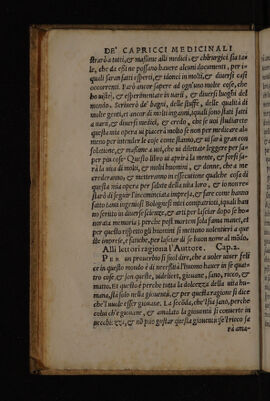 DE' CAPRICCI MEDICINALI
strarò a tutti, & massime alli medici, & chirurgici sia ta-
le, che da essi ne possano havere alcuni documenti, per i
quali saran fatti esperti, & idonei in molti, & diversi casi
occorrenti. Farò ancor sapere ad ogn'uno molte cose, che
usate, & esperimentate in varij, & diversi luoghi del
mondo. Scriverò de' bagni, delle stuffe, delle qualità di
molte genti, et ancor di molti ingannì, i quali sono stati fatti
a varij, & diversi medici, & credo, che se voi studiarete
questa mia opera vi piacerà molto se non per medicare al-
meno per intender le cose come stanno, & vi sarà gran con-
solatione, & massime a voi, che vi dilettate leggere per sa-
per più cose. Questo libro vi aprirà la mente, & forsi sa-
rà la vita di molti, & molti huomini, & donne, che a me
crederanno, & metteranno in essecutione qualche cosa di
questa mia opera per salute della vita loro, & io non re-
starò di seguir l'incominciata impresa, & fare come hanno
fatto tanti ingeniosi Bolognesi miei compatrioti, i quali han
no scritto in diverse scienze, & arti per lasciar dopo se ho-
norata memoria: perche post mortem sola fama manet, et
per questo rispetto gli huomini si mettono volentieri a que
ste imprese, & fatiche, per lasciar di se buon nome al mondo.
Alli lettori ragiona l'Auttore. Cap. 2.
PER un proverbio si suol dire, che a voler viver felice
in questo mondo è di necessità l'huomo haver in se quat-
tro cose, & son queste, videlicet, giovane, sano, ricco, &
matto. Et questo è perche tutta la dolcezza della vita hu-
mana, sta solo nella gioventù, & per questa ragione si dice
che l'vuole esser giovane. La secōda, che l'sia sano, perche
colui ch'è giovane, & amalato la gioventù si converte in
vecchiezza, & nō può gustar questa gioventù: se'l ricco sa
rà ama-